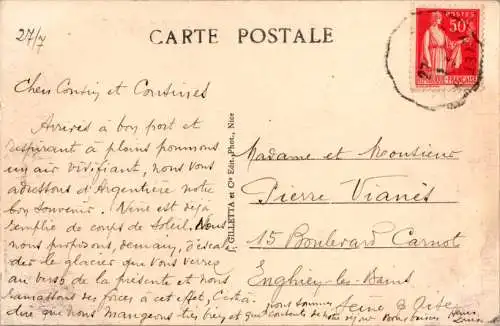 27/7
CARTE POSTALE
POSTES
50c
RÉPUBLIQUE FRANÇAISE
Cher Cousin et Cousines
Arrivés à bon port et
respirant à pleins poumons
un air vivifiant, nous vous
adressons d'Argentière notre
bon souvenir. Nine est déjà
remplie de coups de soleil. Nous
nous proposons, demain, d'escala
der le glacier que vous verrez
au verso de la présente et nous
ramassons nos forces à cet effet. C'est à
dire que nous mangeons très bien et que
nous sommes
contents de notre séjour Bons baisers
J. GILLETTA et Cie Edit. Phot., Nice
Madame et Monsieur
Pierre Vianès
15 Boulevard Carnot
Enghien-les-Bains
Seine & Oise